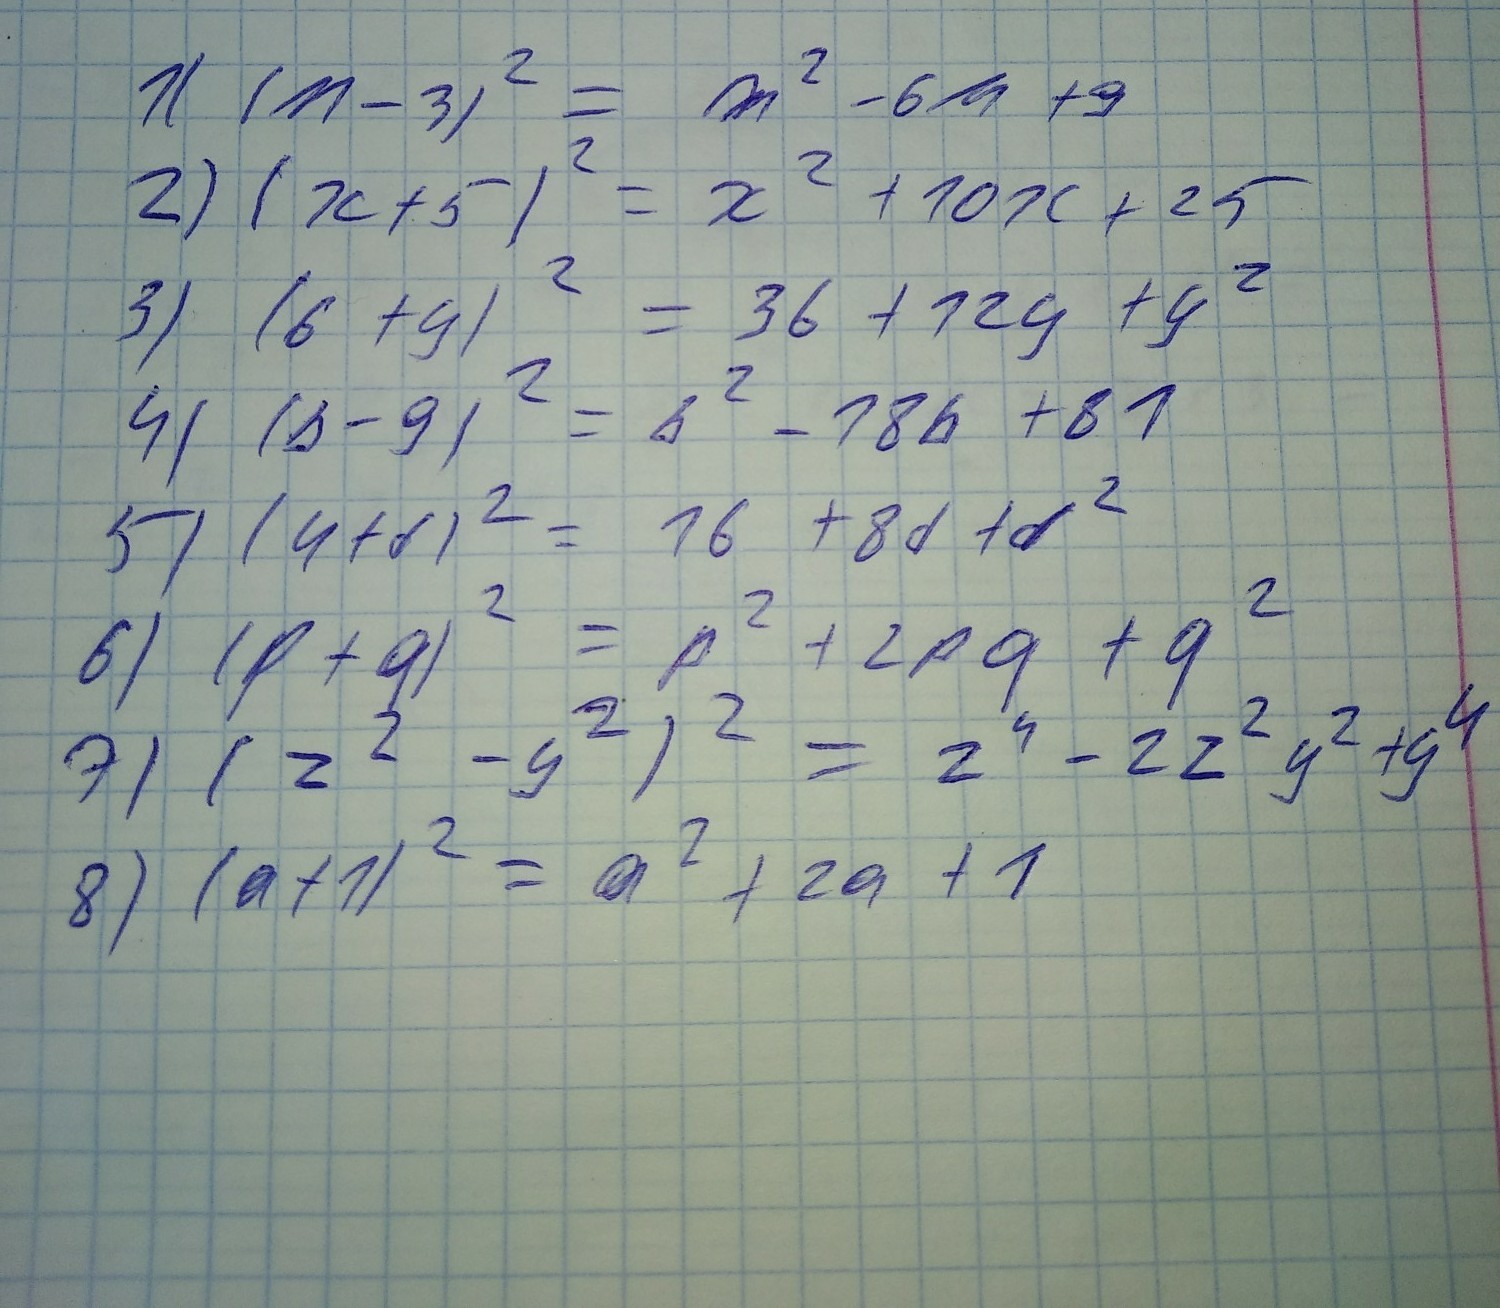 1) (n-3)² = n² -6n +9
2) (x+5)² = x² +10x+25
3) (6+y)² = 36 +12y +y²
4) (b-9)² = b² -18b +81
5) (4+d)² = 16 +8d +d²
6) (p+q)² = p² +2pq +q²
7) (z² -y²)² = z⁴ -2z²y² +y⁴
8) (a+1)² = a² +2a +1